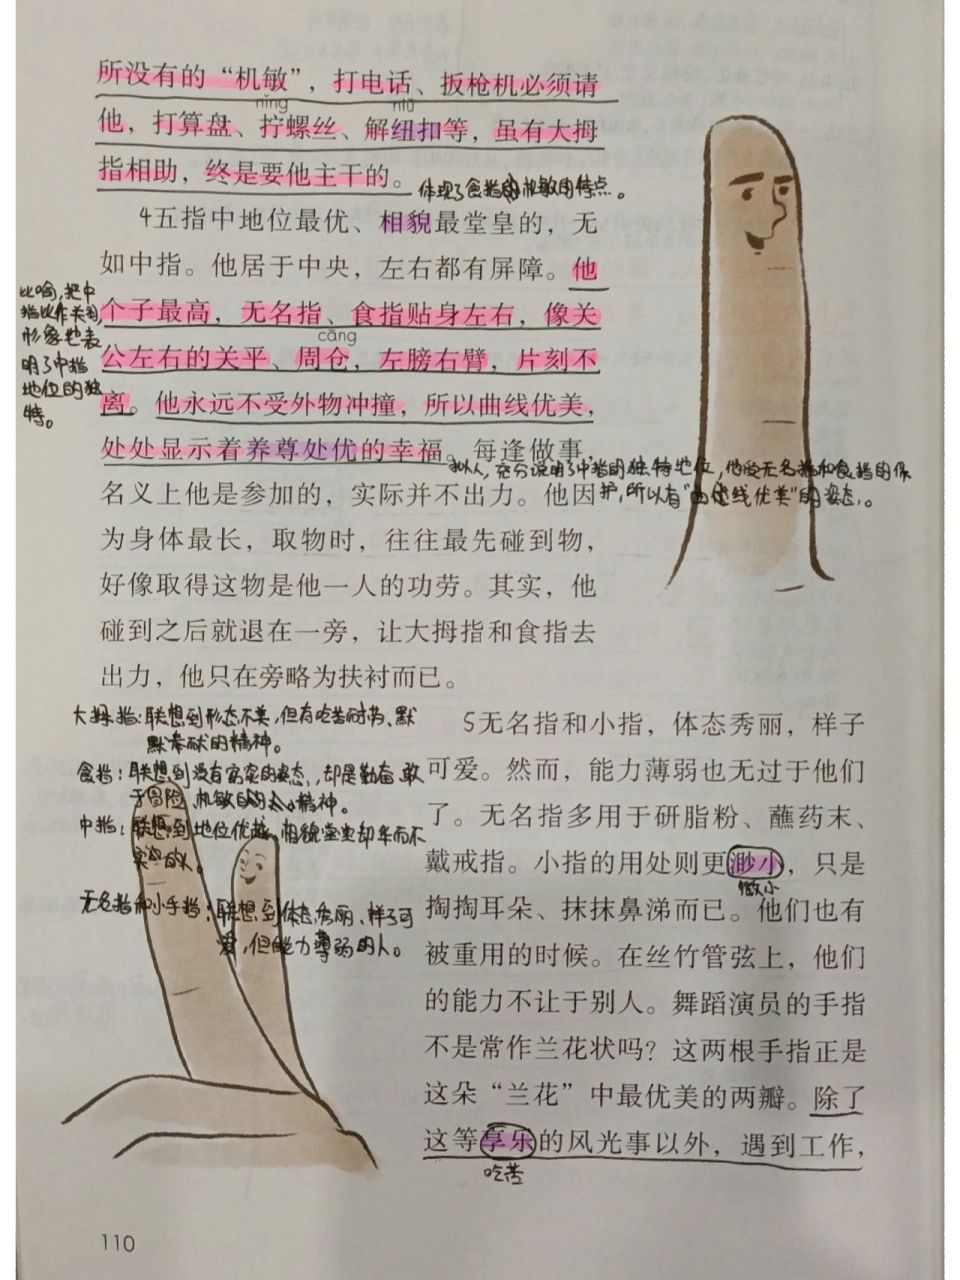 所没有的“机敏”，打电话、扳枪机必须请
nǐng niǔ
他，打算盘、拧螺丝、解纽扣等，虽有大拇
指相助，终是要他主干的。
体现了食指的机敏的特点。
4五指中地位最优、相貌最堂皇的，无
如中指。他居于中央，左右都有屏障。他
个子最高，无名指、食指贴身左右，像关
cāng
公左右的关平、周仓，左膀右臂，片刻不
离。他永远不受外物冲撞，所以曲线优美，
处处显示着养尊处优的幸福。每逢做事，
名义上他是参加的，实际并不出力。他因
为身体最长，取物时，往往最先碰到物，
好像取得这物是他一人的功劳。其实，他
碰到之后就退在一旁，让大拇指和食指去
出力，他只在旁略为扶衬而已。
比喻，把中
指比作关羽，
形象地表
明了中指
地位的独
特。
拟人，充分说明了中指的独特地位，他受无名指和食指的保
护，所以有“曲线优美”的姿态。
大拇指：联想到形态不美，但有吃苦耐劳、默
默奉献的精神。
食指：联想到没有窈窕的姿态，却是勤奋敢
于冒险、机敏的精神。
中指：联想到地位优越、相貌堂堂却华而不
实的人。
无名指和小手指：联想到体态秀丽、样子可
爱，但能力薄弱的人。
5无名指和小指，体态秀丽，样子
可爱。然而，能力薄弱也无过于他们
了。无名指多用于研脂粉、蘸药末、
戴戒指。小指的用处则更渺小，只是
微小
掏掏耳朵、抹抹鼻涕而已。他们也有
被重用的时候。在丝竹管弦上，他们
的能力不让于别人。舞蹈演员的手指
不是常作兰花状吗？这两根手指正是
这朵“兰花”中最优美的两瓣。除了
这等享乐的风光事以外，遇到工作，
吃苦
110